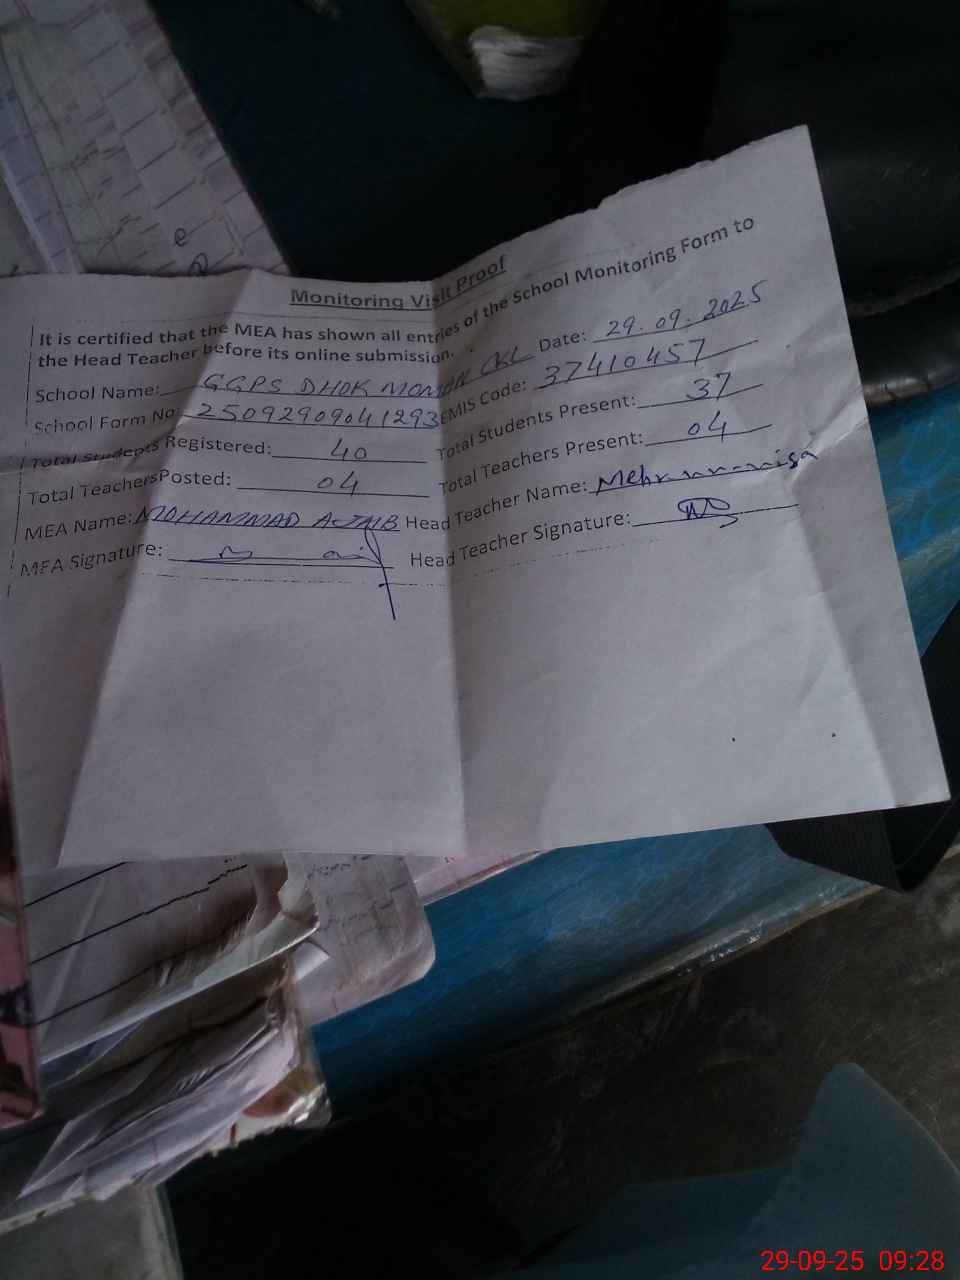 Monitoring Visit Proof
It is certified that the MEA has shown all entries of the School Monitoring Form to
the Head Teacher before its online submission. Date: 29.09.2025
School Name: GGPS DHOK MOMAN CKL EMIS Code: 37410457
School Form No: 25092909041293 Total Students Present: 37
Total Students Registered: 40 Total Teachers Present: 04
Total Teachers Posted: 04 Head Teacher Name: Mehr-un-nisa
MEA Name: MOHAMMAD AJMB Head Teacher Signature:
MEA Signature:
29-09-25 09:28